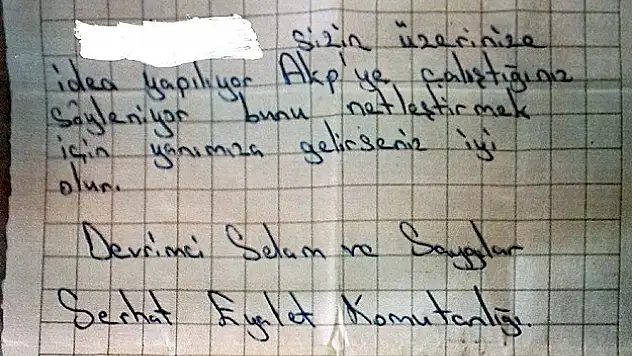 sizin üzerinize
idea yapılıyor Akp'ye çalıştığınız
söyleniyor bunu netleştirmek
için yanımıza gelirseniz iyi
olur.
Devrimci Selam ve Saygılar
Serhat Eyalet Komutanlığı.